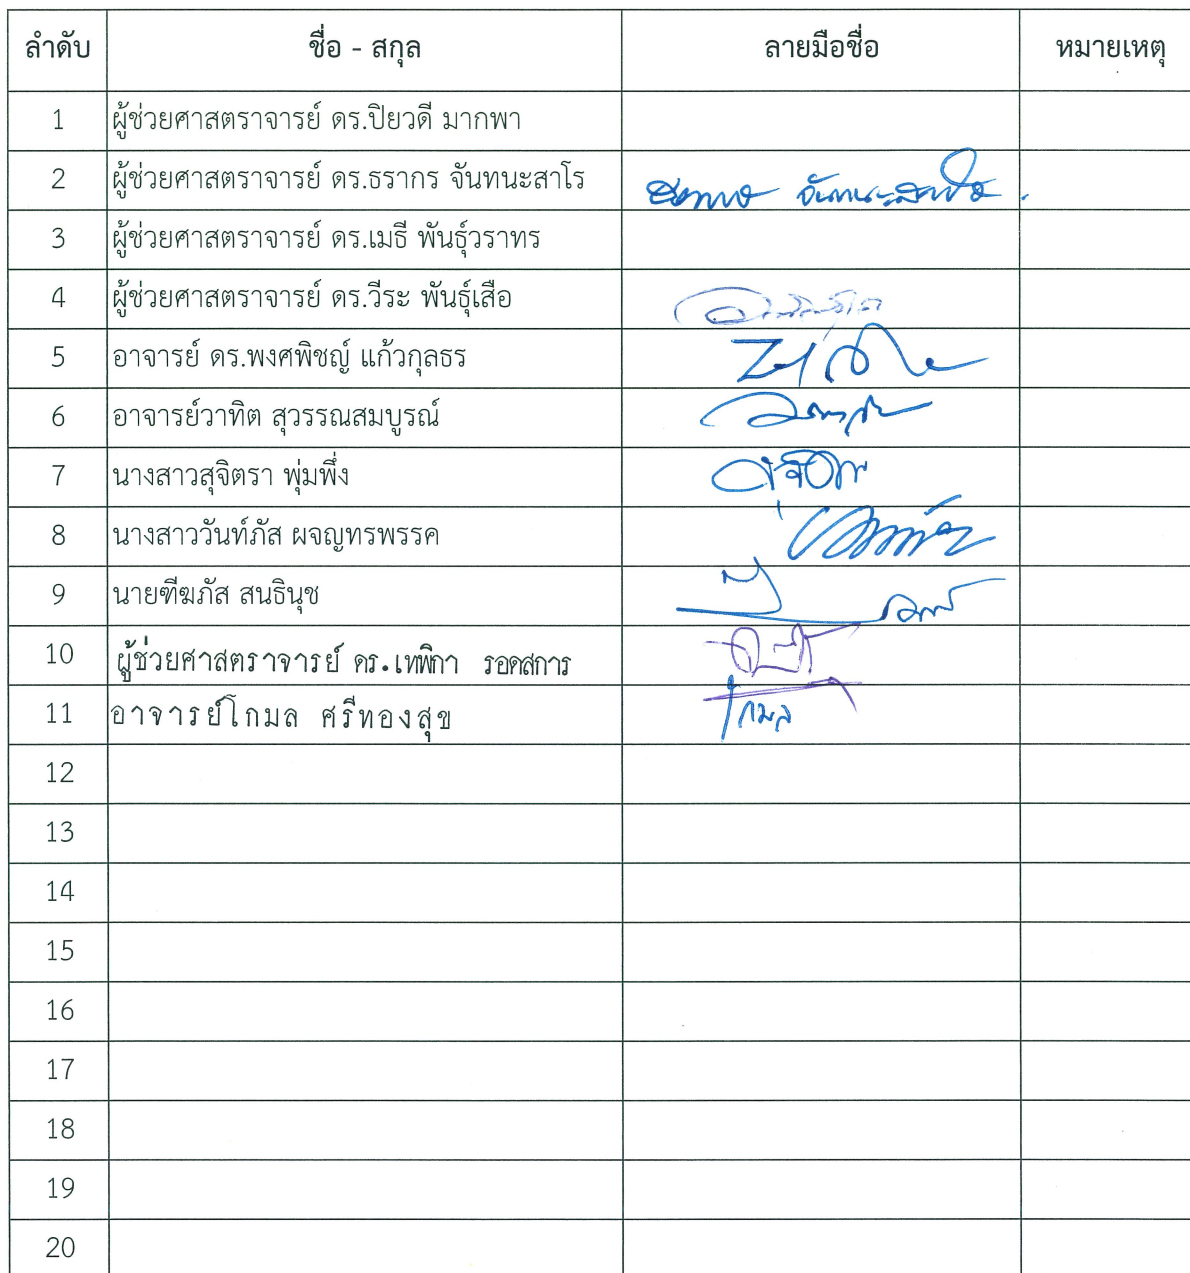 ลำดับ ชื่อ - สกุล ลายมือชื่อ หมายเหตุ
1 ผู้ช่วยศาสตราจารย์ ดร.ปิยวดี มากพา
2 ผู้ช่วยศาสตราจารย์ ดร.ธรากร จันทนะสาโร จันทนะสาโร
3 ผู้ช่วยศาสตราจารย์ ดร.เมธี พันธุ์วราทร
4 ผู้ช่วยศาสตราจารย์ ดร.วีระ พันธุ์เสือ
5 อาจารย์ ดร.พงศพิชญ์ แก้วกุลธร
6 อาจารย์วาทิต สุวรรณสมบูรณ์
7 นางสาวสุจิตรา พุ่มพึ่ง
8 นางสาววันท์ภัส ผจญทรพรรค
9 นายฑีฆภัส สนธินุช
10 ผู้ช่วยศาสตราจารย์ ดร.เทพิกา รอดสการ
11 อาจารย์โกมล ศรีทองสุข โกมล
12
13
14
15
16
17
18
19
20